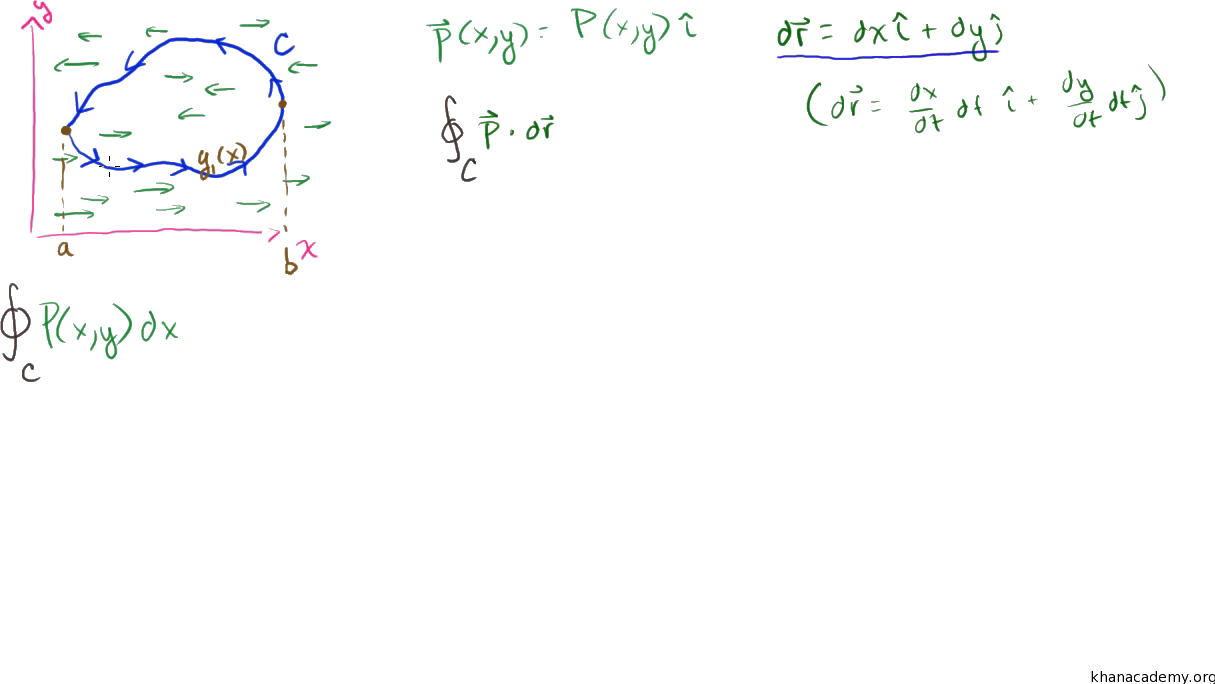 y
C
y₁(x)
a
b
x
p⃗(x,y) = P(x,y) î
dr⃗ = dx î + dy ĵ
(dr⃗ = dx/dt dt î + dy/dt dt ĵ)
∮_C p⃗ · dr⃗
∮_C P(x,y) dx
khanacademy.org